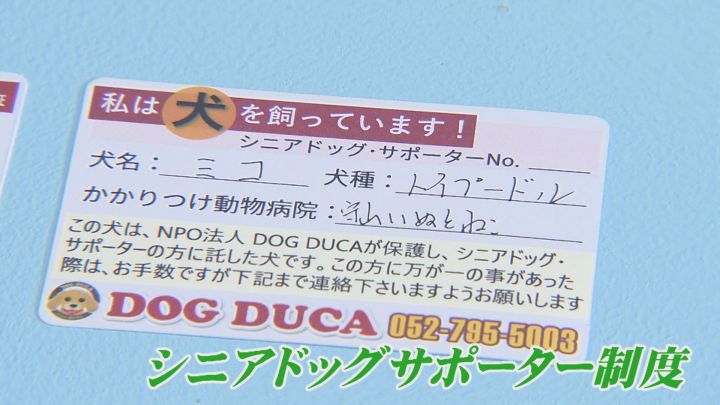 私は犬を飼っています！
シニアドッグ・サポーターNo.
犬名：ミコ 犬種：トイプードル
かかりつけ動物病院：いぬとねこ
この犬は、NPO法人 DOG DUCAが保護し、シニアドッグ・
サポーターの方に託した犬です。この方に万が一の事があった
際は、お手数ですが下記まで連絡下さいますようお願いします
DOG DUCA 052-795-5003
シニアドッグサポーター制度